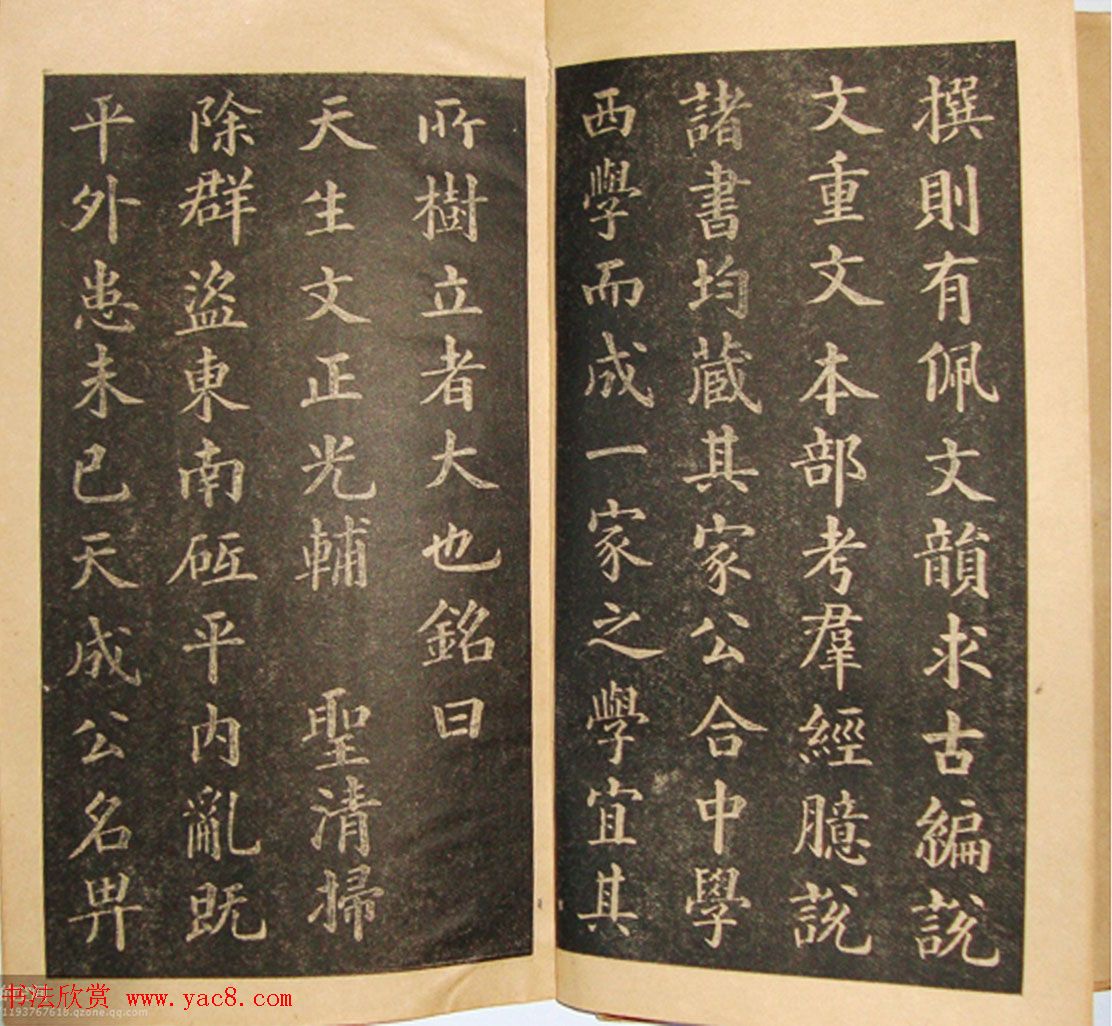 撰則有佩文韻求古編說
文重文本部考羣經臆說
諸書均藏其家公合中學
西學而成一家之學宜其
所樹立者大也銘曰
天生文正光輔　聖清掃
除群盜東南砥平內亂既
平外患未已天成公名畀
书法欣赏 www.yac8.com
1193767618.qzone.qq.com